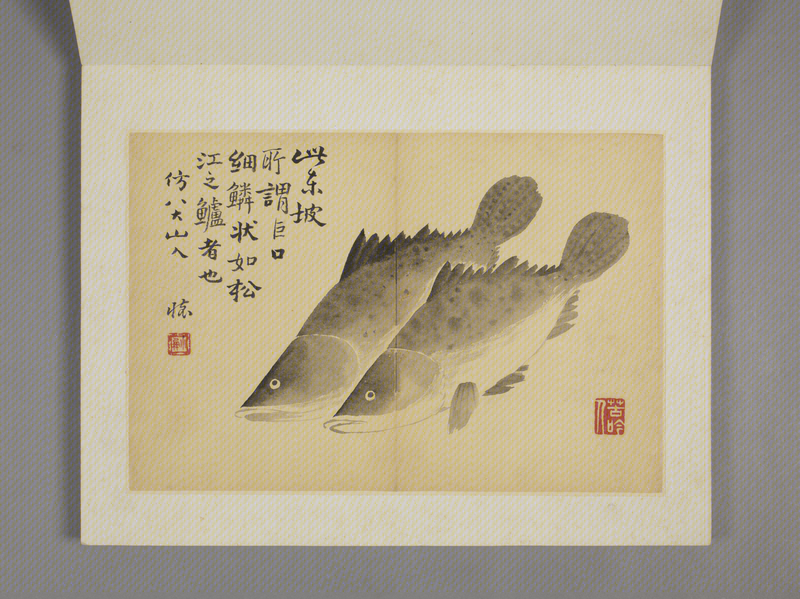 此东坡
所謂巨口
細鱗状如松
江之鱸者也
仿八大山人
苦吟